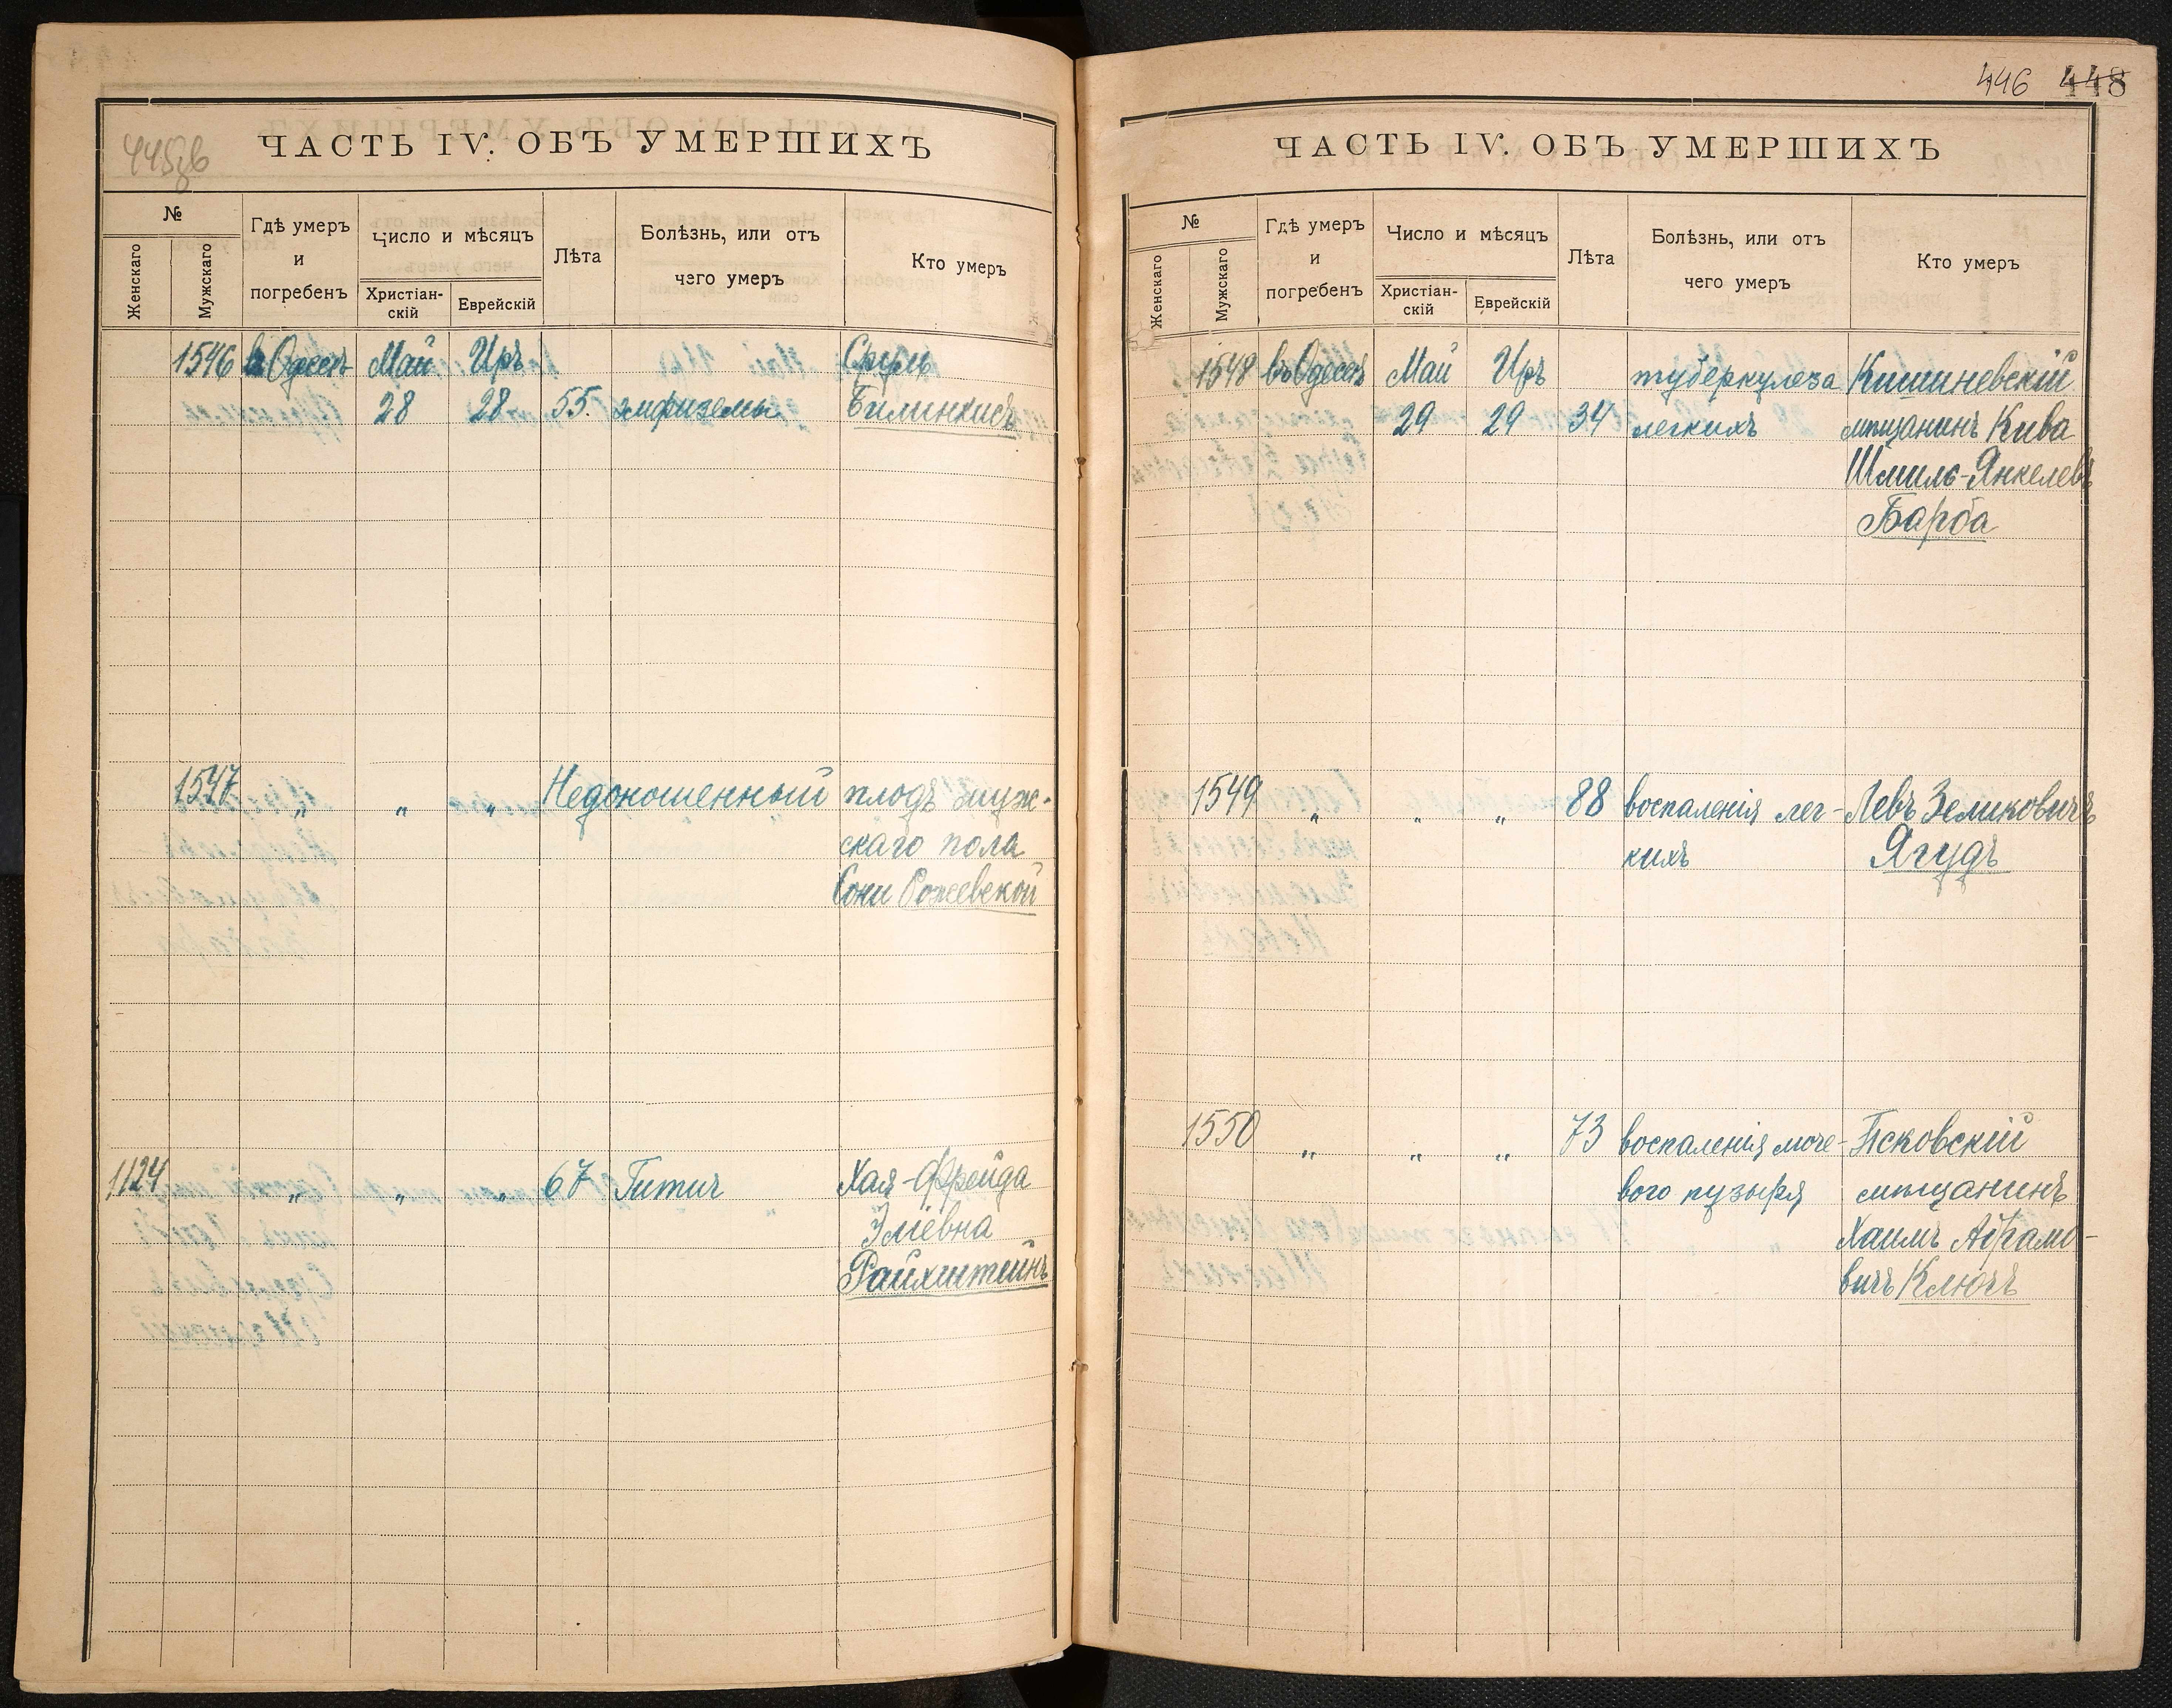 445об
ЧАСТЬ IV. ОБЪ УМЕРШИХЪ
№
Женскаго
Мужскаго
Гдѣ умеръ
и
погребенъ
Число и мѣсяцъ
Христіан-
скій
Еврейскій
Лѣта
Болѣзнь, или отъ
чего умеръ
Кто умеръ
1546 въ Одессѣ Май Иръ Сруль
28 28 55. эмфиземы Билинкисъ
1547 „ „ „ Недоношенный плодъ муж-
скаго пола
Сони Рожевской
1124 „ „ „ 67 Гитич Хая-Фрейда
Эліевна
Райхштейнъ
446 448
ЧАСТЬ IV. ОБЪ УМЕРШИХЪ
№
Женскаго
Мужскаго
Гдѣ умеръ
и
погребенъ
Число и мѣсяцъ
Христіан-
скій
Еврейскій
Лѣта
Болѣзнь, или отъ
чего умеръ
Кто умеръ
1548 въ Одессѣ Май Иръ туберкулеза Кишиневскій
29 29 34 легкихъ мѣщанинъ Кива
Шмиль-Янкелевъ
Барба
1549 „ „ „ 88 воспаленія лег- Левъ Зеликовичъ
кихъ Ягудъ
1550 „ „ „ 73 воспаленія моче- Псковскій
вого пузыря мѣщанинъ
Хаимъ Абрамо-
вичъ Ключъ